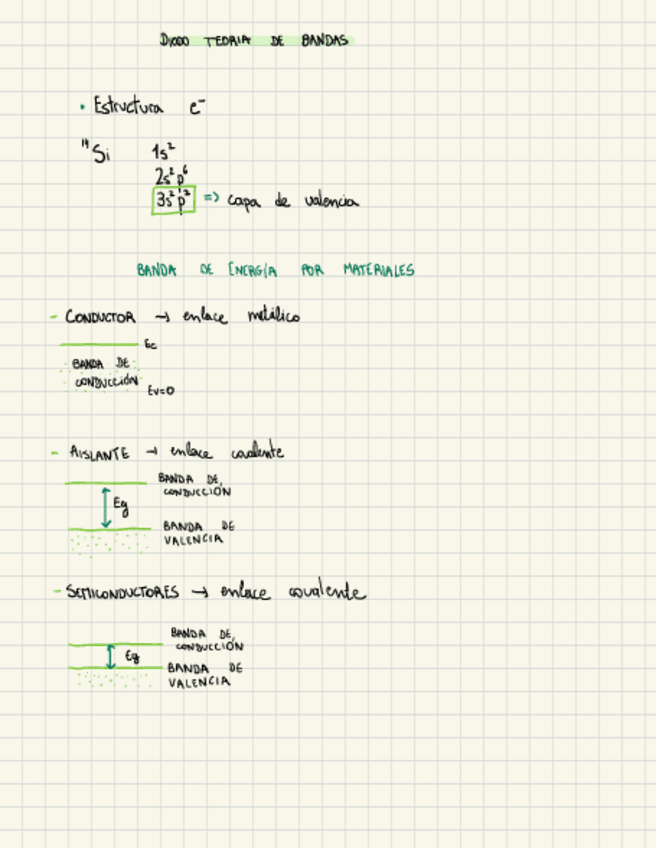 DIODO TEORIA DE BANDAS
• Estructura e⁻
¹⁴Si 1s²
2s²p⁶
3s²p² => capa de valencia
BANDA DE ENERGÍA POR MATERIALES
- CONDUCTOR → enlace metálico
Ec
BANDA DE
CONDUCCIÓN
Ev=0
- AISLANTE → enlace covalente
BANDA DE
CONDUCCIÓN
Eg
BANDA DE
VALENCIA
- SEMICONDUCTORES → enlace covalente
BANDA DE
CONDUCCIÓN
Eg
BANDA DE
VALENCIA